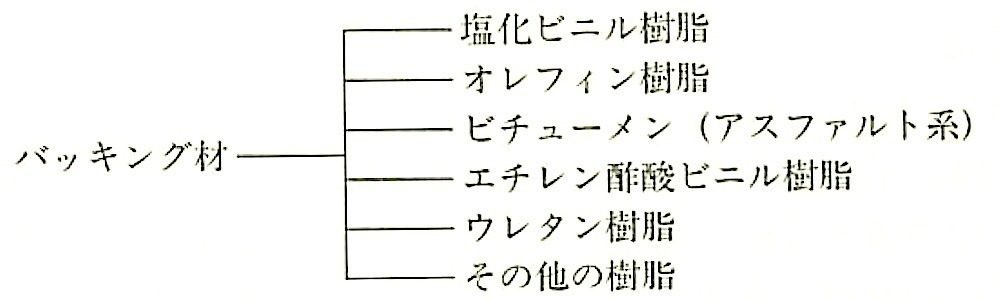 塩化ビニル樹脂
オレフィン樹脂
ビチューメン (アスファルト系)
バッキング材
エチレン酢酸ビニル樹脂
ウレタン樹脂
その他の樹脂